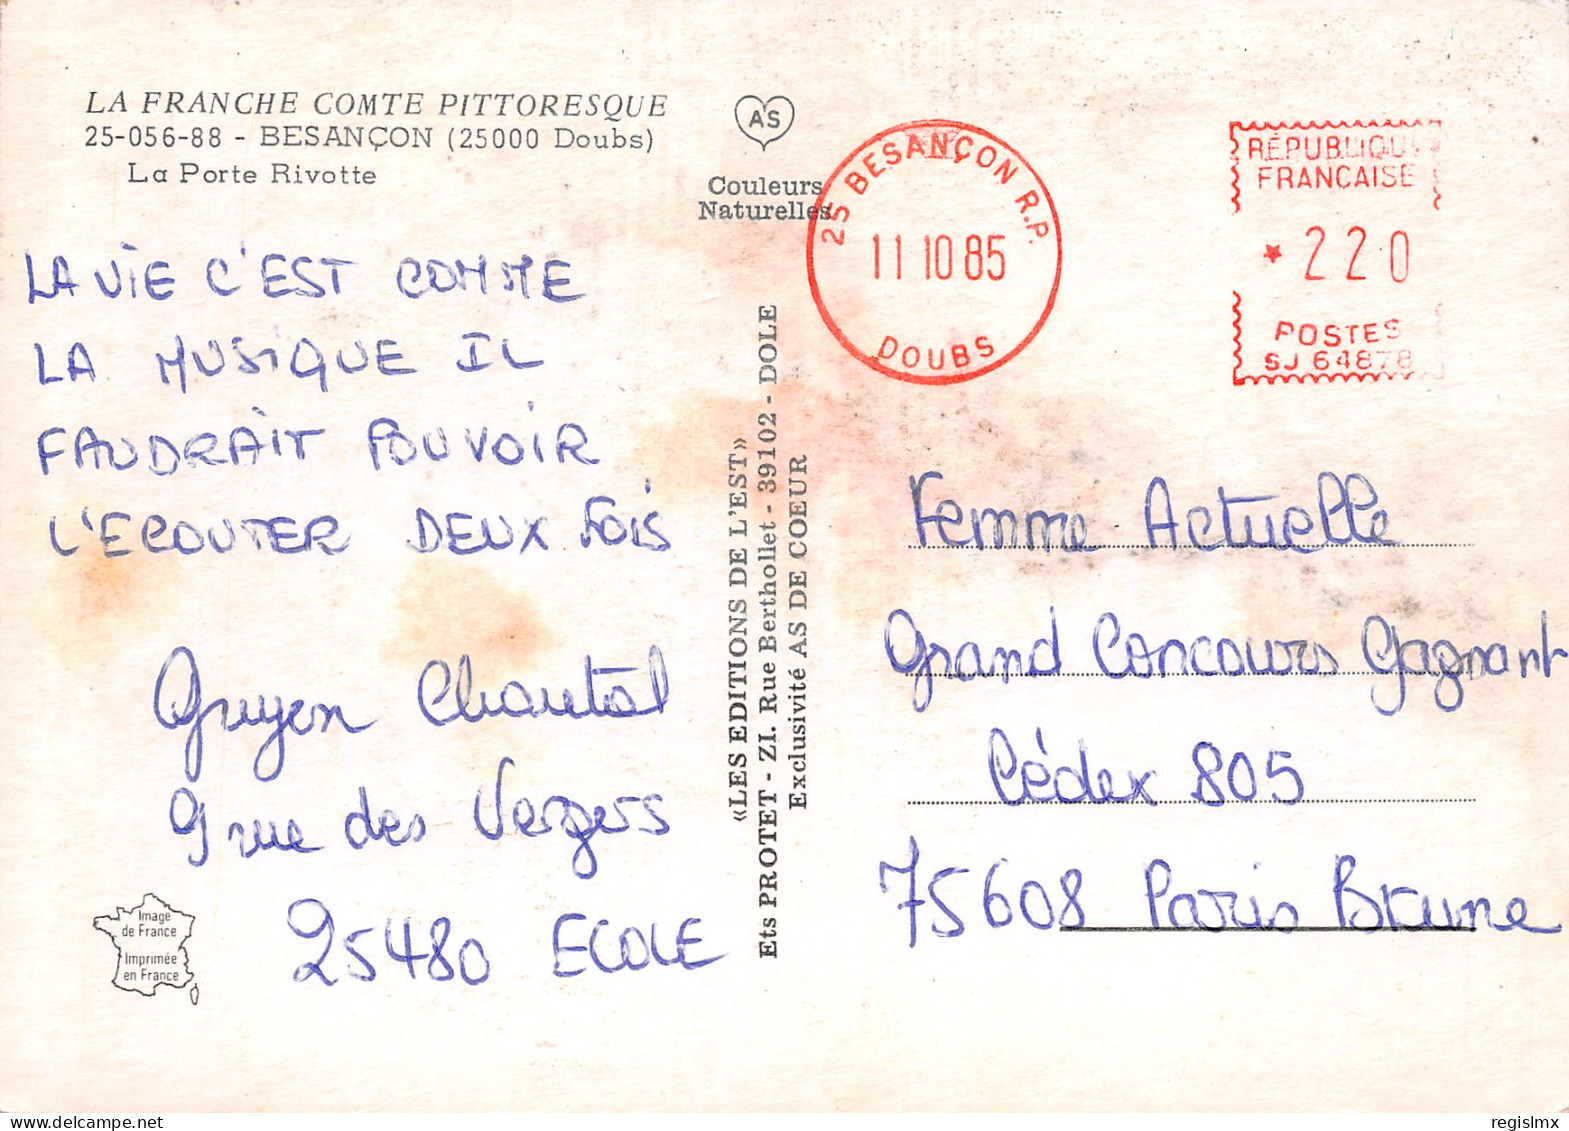 LA FRANCHE COMTE PITTORESQUE
25-056-88 - BESANÇON (25000 Doubs)
La Porte Rivotte
AS
Couleurs
Naturelles
25 BESANÇON R.P.
11 10 85
DOUBS
RÉPUBLIQUE
FRANÇAISE
* 220
POSTES
SJ 64878
LA VIE C'EST COMME
LA MUSIQUE IL
FAUDRAIT POUVOIR
L'ECOUTER DEUX FOIS
Guyen Chantal
9 rue des Vergers
25480 ECOLE
«LES EDITIONS DE L'EST»
Ets PROTET - ZI. Rue Berthollet - 39102 - DOLE
Exclusivité AS DE COEUR
Femme Actuelle
Grand Concours Gagnant
Cédex 805
75608 Paris Brune
Image
de France
Imprimée
en France
regislmx